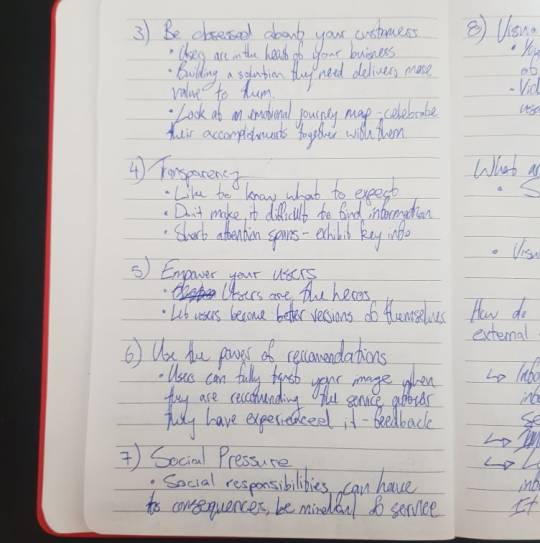 3) Be obsessed about your customers
• Users are in the heart of your business
• Building a solution they need delivers more
value to them.
• Look at an emotional journey map - celebrate
their accomplishments together with them
4) Transparency
• Like to know what to expect
• Don't make it difficult to find information
• Short attention spans - exhibit key info
5) Empower your users
• Users are the heros
• Let users become better versions of themselves
6) Use the power of reccomendations
• Users can fully trust your image when
they are reccomending the service after
they have experienced it - feedback
7) Social Pressure
• Social responsibilities can have
to consequences, be mindful of service
8) Visua
What a
How do
external